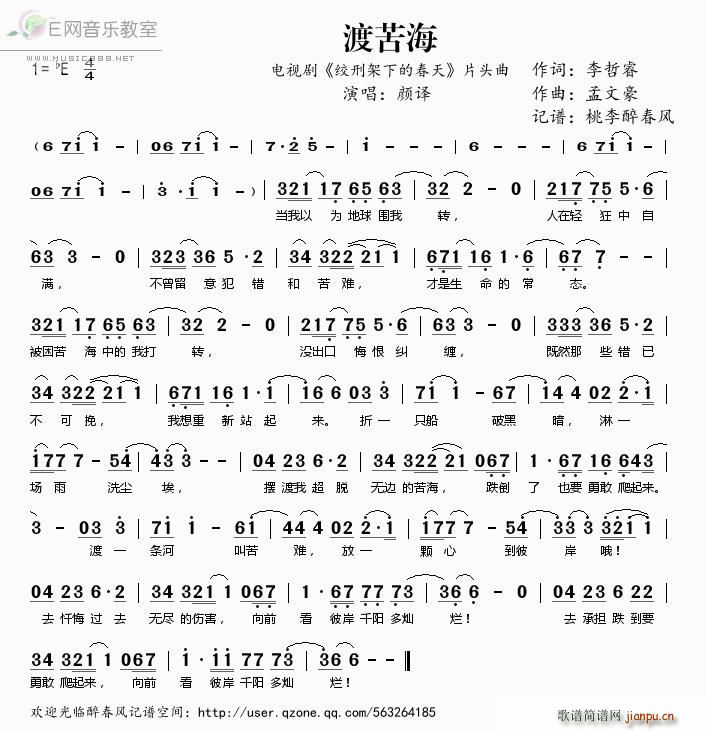 E网音乐教室
www.music888.net
渡苦海
1=♭E 4/4
电视剧《绞刑架下的春天》片头曲 作词：李哲睿
演唱：颜译 作曲：孟文豪
记谱：桃李醉春风
( 6 7i i - | 06 7i i - | 7·2 5 - | i - - - | 6 7i i - |
06 7i i - | 3·i i - | i - - - ) | 321 17 65 63 | 32 2 - 0 | 217 75 5·6 |
当我以 为地球围我 转， 人在轻 狂中自
63 3 - 0 | 323 36 5·2 | 34 322 21 1 | 671 16 1·6 | 67 7 - - |
满， 不曾留 意犯错 和苦难， 才是生 命的常 态。
321 17 65 63 | 32 2 - 0 | 217 75 5·6 | 63 3 - 0 | 333 36 5·2 |
被困苦 海中的我打 转， 没出口 悔恨纠 缠， 既然那 些错已
34 322 21 1 | 671 16 1·i | 16 6 03 3 | 7i i - 67 | i4 4 02 2·i |
不可挽， 我想重 新站起 来。折一 只船 破黑 暗，淋一
i77 7 - 54 | 43 3 - - | 04 23 6·2 | 34 322 21 067 | i 067 16 643 |
场雨 洗尘 埃， 摆渡我超脱 无边的苦海，跌倒 了 也要勇敢爬起来。
3 - 03 3 | 7i i - 6i | 44 4 02 2·i | i77 7 - 54 | 33 321 1 - |
渡一 条河 叫苦 难，放一 颗心 到彼 岸哦！
04 23 6·2 | 34 321 1 067 | 1·67 77 73 | 36 6 - - | 04 23 6 22 |
去忏悔过去 无尽的伤害，向前 看 彼岸千阳多灿 烂！ 去承担跌到要
34 321 1 067 | i·ii 77 73 | 36 6 - - ‖
勇敢爬起来，向前 看 彼岸千阳多灿 烂！
欢迎光临醉春风记谱空间：http://user.qzone.qq.com/563264185
歌谱简谱网 jianpu.cn